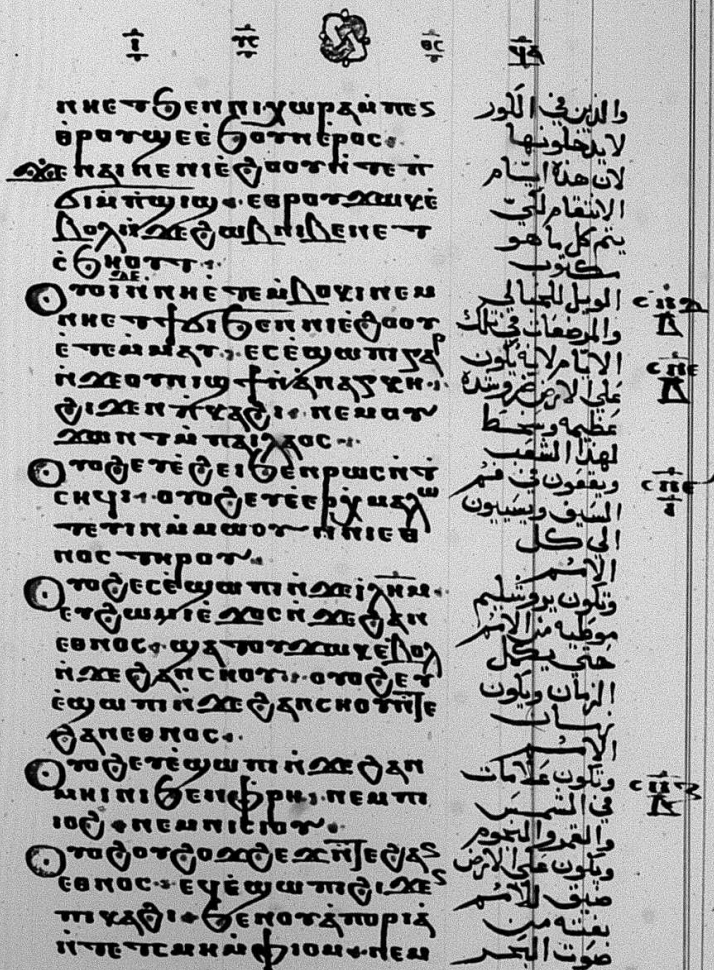 ⲛⲏⲉⲧϧⲉⲛⲛⲓⲭⲱⲣⲁⲙⲡⲉⲛ
ⲑⲣⲟⲩϣⲉⲉϧⲟⲩⲛⲉⲣⲟⲥ:
ϫⲉⲛⲁⲓⲛⲉⲛⲓⲉϩⲟⲟⲩⲛⲧⲉⲡ̀
ϭⲓⲙ̀ⲡϣⲓϣ· ⲉⲑⲣⲟⲩϫⲱⲕⲉ̀
ⲃⲟⲗⲛ̀ϫⲉϩⲱⲃⲛⲓⲃⲉⲛⲉⲧ
ⲥ̀ϧⲏⲟⲩⲧ:
ⲟⲩⲟⲓⲇⲉⲛⲛⲏⲉⲧⲉⲙ̀ⲃⲟⲕⲓⲛⲉⲙ
ⲛⲏⲉⲧϯϭⲓϧⲉⲛⲛⲓⲉϩⲟⲟⲩ
ⲉ̀ⲧⲉⲙⲙⲁⲩ: ⲉⲥⲉ̀ϣⲱⲡⲓⲅⲁⲣ
ⲛ̀ϫⲉⲟⲩⲛⲓϣϯⲛ̀ⲁⲛⲁⲅⲕⲏ:
ϩⲓϫⲉⲛⲡ̀ⲕⲁϩⲓ: ⲛⲉⲙⲟⲩ
ϫⲱⲛⲧⲙ̀ⲡⲁⲓⲗⲁⲟⲥ:
ⲟⲩⲟϩⲉⲩⲉ̀ϩⲉⲓϧⲉⲛⲣⲱⲥⲛ̀ⲧ
ⲥⲏϥⲓ: ⲟⲩⲟϩⲉⲩⲉⲉⲣⲭⲙⲁⲗⲱ
ⲧⲉⲩⲓⲛⲙ̀ⲙⲱⲟⲩ ⲛⲛⲓⲉⲑ
ⲛⲟⲥⲧⲏⲣⲟⲩ:
ⲟⲩⲟϩⲉⲥⲉ̀ϣⲱⲡⲓⲛ̀ϫⲉⲓⲗⲏⲙ:
ⲉⲩϩⲱⲙⲓⲉ̀ϫⲱⲥⲛ̀ϫⲉϩⲁⲛ
ⲉⲑⲛⲟⲥ· ϣⲁⲧⲟⲩϫⲱⲕⲉ̀ⲃⲟⲗ
ⲛ̀ϫⲉϩⲁⲛⲥⲏⲟⲩ: ⲟⲩⲟϩⲉⲩ
ⲉ̀ϣⲱⲡⲓⲛ̀ϫⲉϩⲁⲛⲥⲏⲟⲩⲛ̀ⲧⲉ
ϩⲁⲛⲉⲑⲛⲟⲥ:
ⲟⲩⲟϩⲉⲩⲉ̀ϣⲱⲡⲓⲛ̀ϫⲉϩⲁⲛ
ⲙⲏⲓⲛⲓϧⲉⲛⲫ̀ⲣⲏ: ⲛⲉⲙⲡⲓ
ⲓⲟϩ: ⲛⲉⲙⲛⲓⲥⲓⲟⲩ:
ⲟⲩⲟϩⲟⲩϩⲟϫϩⲉϫⲛ̀ⲧⲉϩⲁⲛ
ⲉⲑⲛⲟⲥ: ⲉϥⲉ̀ϣⲱⲡⲓϩⲓϫⲉⲛ
ⲡⲓⲕⲁϩⲓ: ϧⲉⲛⲟⲩⲁ̀ⲡⲟⲣⲓⲁ
ⲛ̀ⲧⲉⲧⲥⲙⲏⲙ̀ⲫⲓⲟⲙ: ⲛⲉⲙ
والذين في الكور
لا يدخلونها
لان هذه ايام
الانتقام لكي
يتم كل ما هو
مكتوب
الويل للحبالى
والمرضعات في تلك
الايام لانه يكون
على الارض ضر وشدة
عظيمه وسخط
لهذا الشعب
ويقعون في فم
السيف ويسبيون
الى كل
الامم
وتكون يروشليم
موطيه من الامم
حتى يكمل
الزمان ويكون
زمان
الامم
وتكون علامات
في الشمس
والقمر والنجوم
ويكون على الارض
ضيق للامم
بغته من
صوت البحر